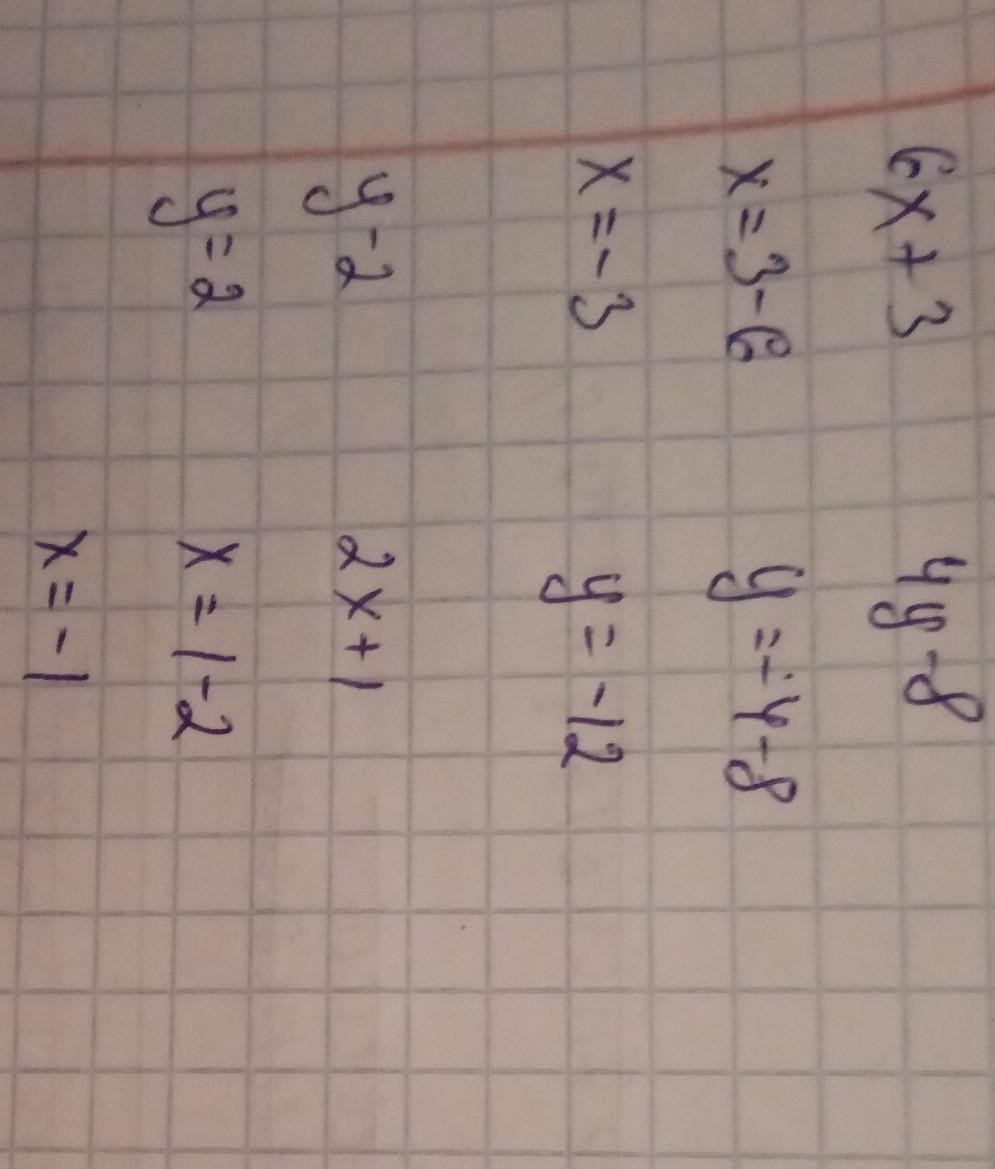 6x+3 4y-8
x=3-6 y=-4-8
x=-3 y=-12
y-2 2x+1
y=2 x=1-2
x=-1